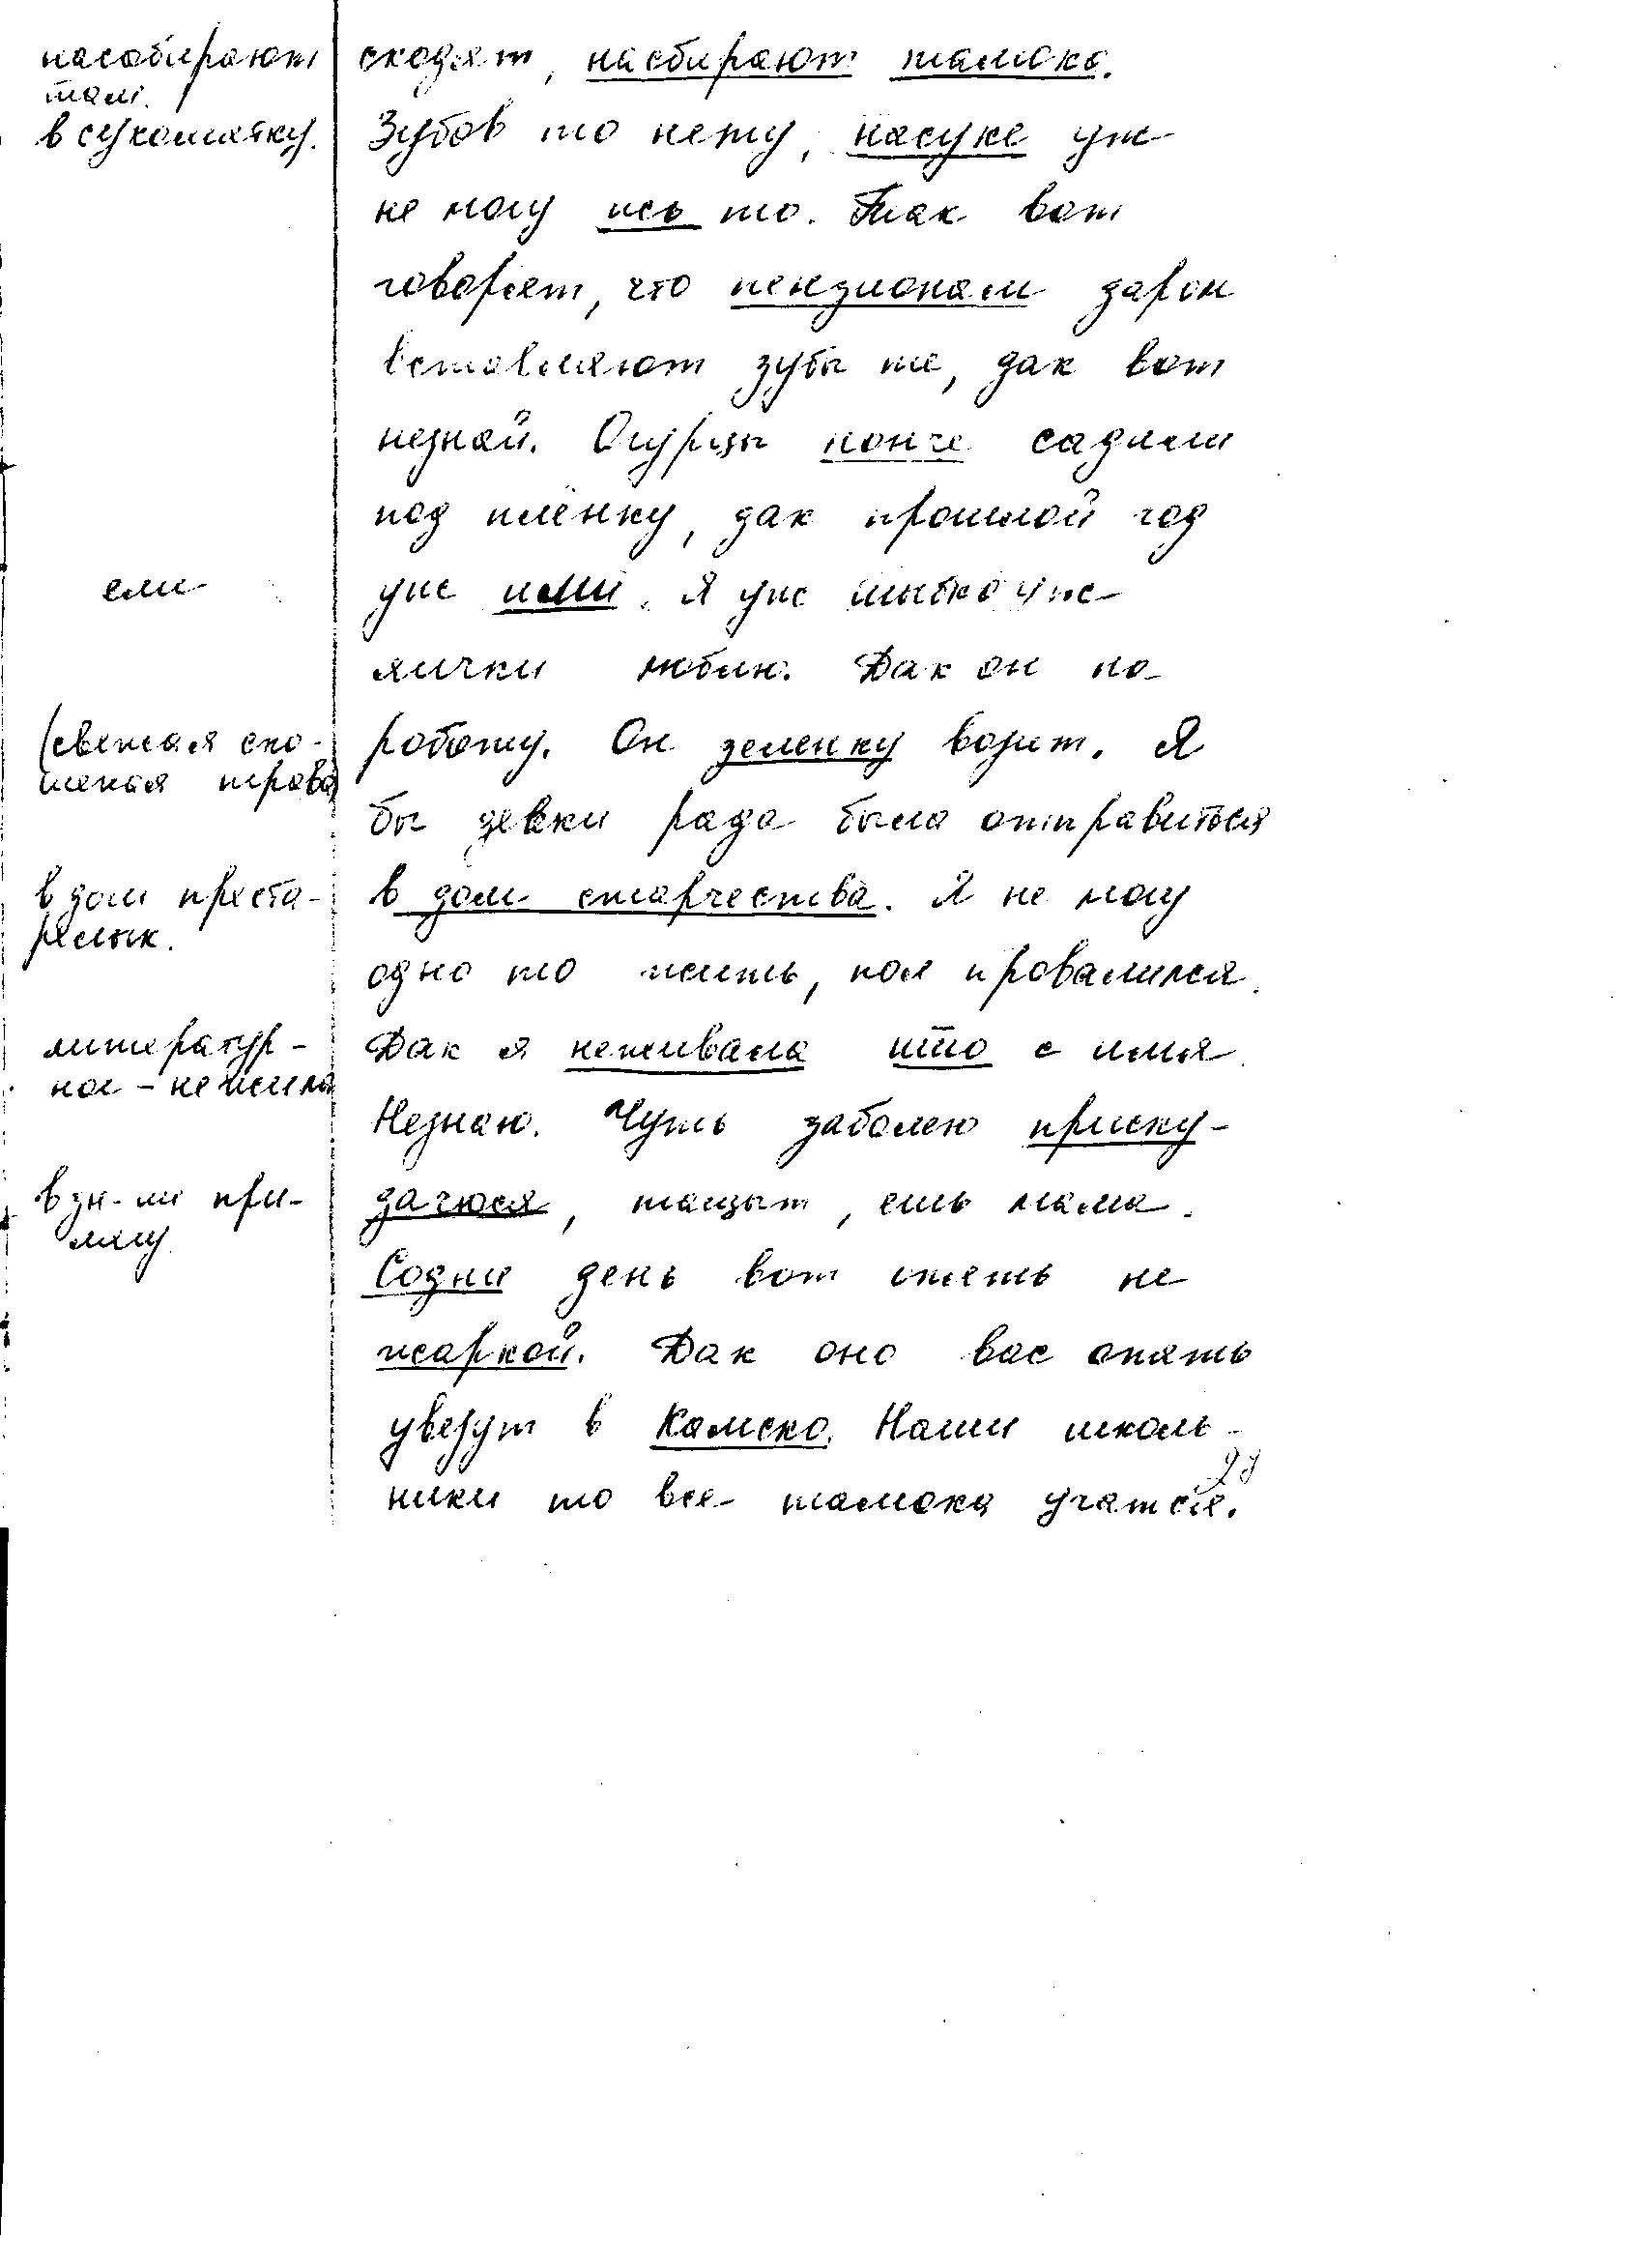 насобирают
там.
в сухомятку.
ели
(свежая ско-
шеная трава)
в дом преста-
релых.
литератур-
ное - не жила
в зн-ии при-
лягу
сходят, насбирают тамока.
Зубов то нету, насухе уж
не могу исть то. Так вот
говорят, что пензионам даром
вставляют зубы те, дак вот
незнай. Огурцы нонче садили
под плёнку, дак прошлой год
уже или. Я уж шыбко уж
яички люблю. Дак он по
работу. Он зеленку возит. Я
бы девки рада была отправиться
в дом старчества. Я не могу
одно то жить, пол провалился.
Дак я неживала што с имя.
Незнаю. Чуть заболею приску-
дачюся, тащыт, ешь мама.
Содни день вот опеть не
жаркой. Дак оно вас опять
увезут в Камско. Наши школь-
ники то все тамока учатся.